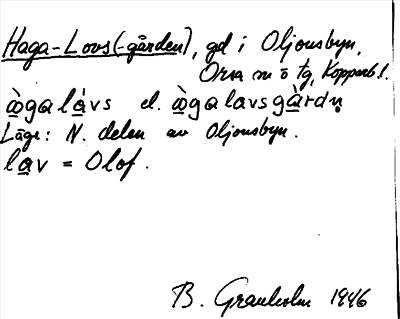 Haga-Lovs(-gården), gd i Oljonsbyn,
Orsa sn o tg, Kopparb. l.
àgalávs el. àgalavsgàrdṇ
Läge: N. delen av Oljonsbyn.
lav = Olof.
B. Granholm 1946